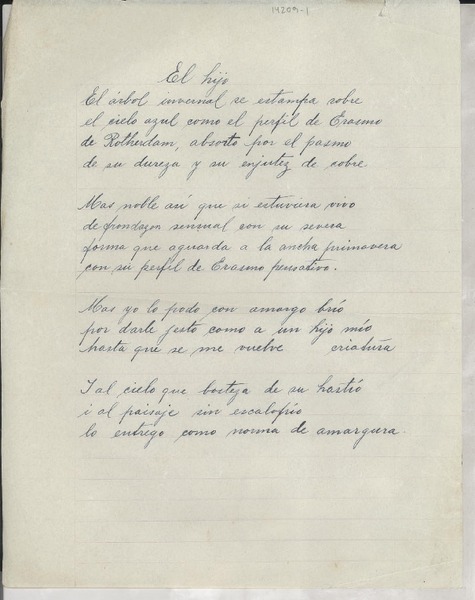 14209-1
El hijo
El árbol invernal se estampa sobre
el cielo azul como el perfil de Erasmo
de Rotherdam, absorto por el pasmo
de su dureza y su enjutez de cobre
Mas noble así que si estuviera vivo
de frondazon sensual con su severa
forma que aguarda a la ancha primavera
con su perfil de Erasmo pensativo.
Mas yo lo podo con amargo brío
por darle gesto como a un hijo mío
hasta que se me vuelve criatura
I al cielo que bosteza de su hastío
i al paisaje sin escalofrío
lo entrego como norma de amargura.